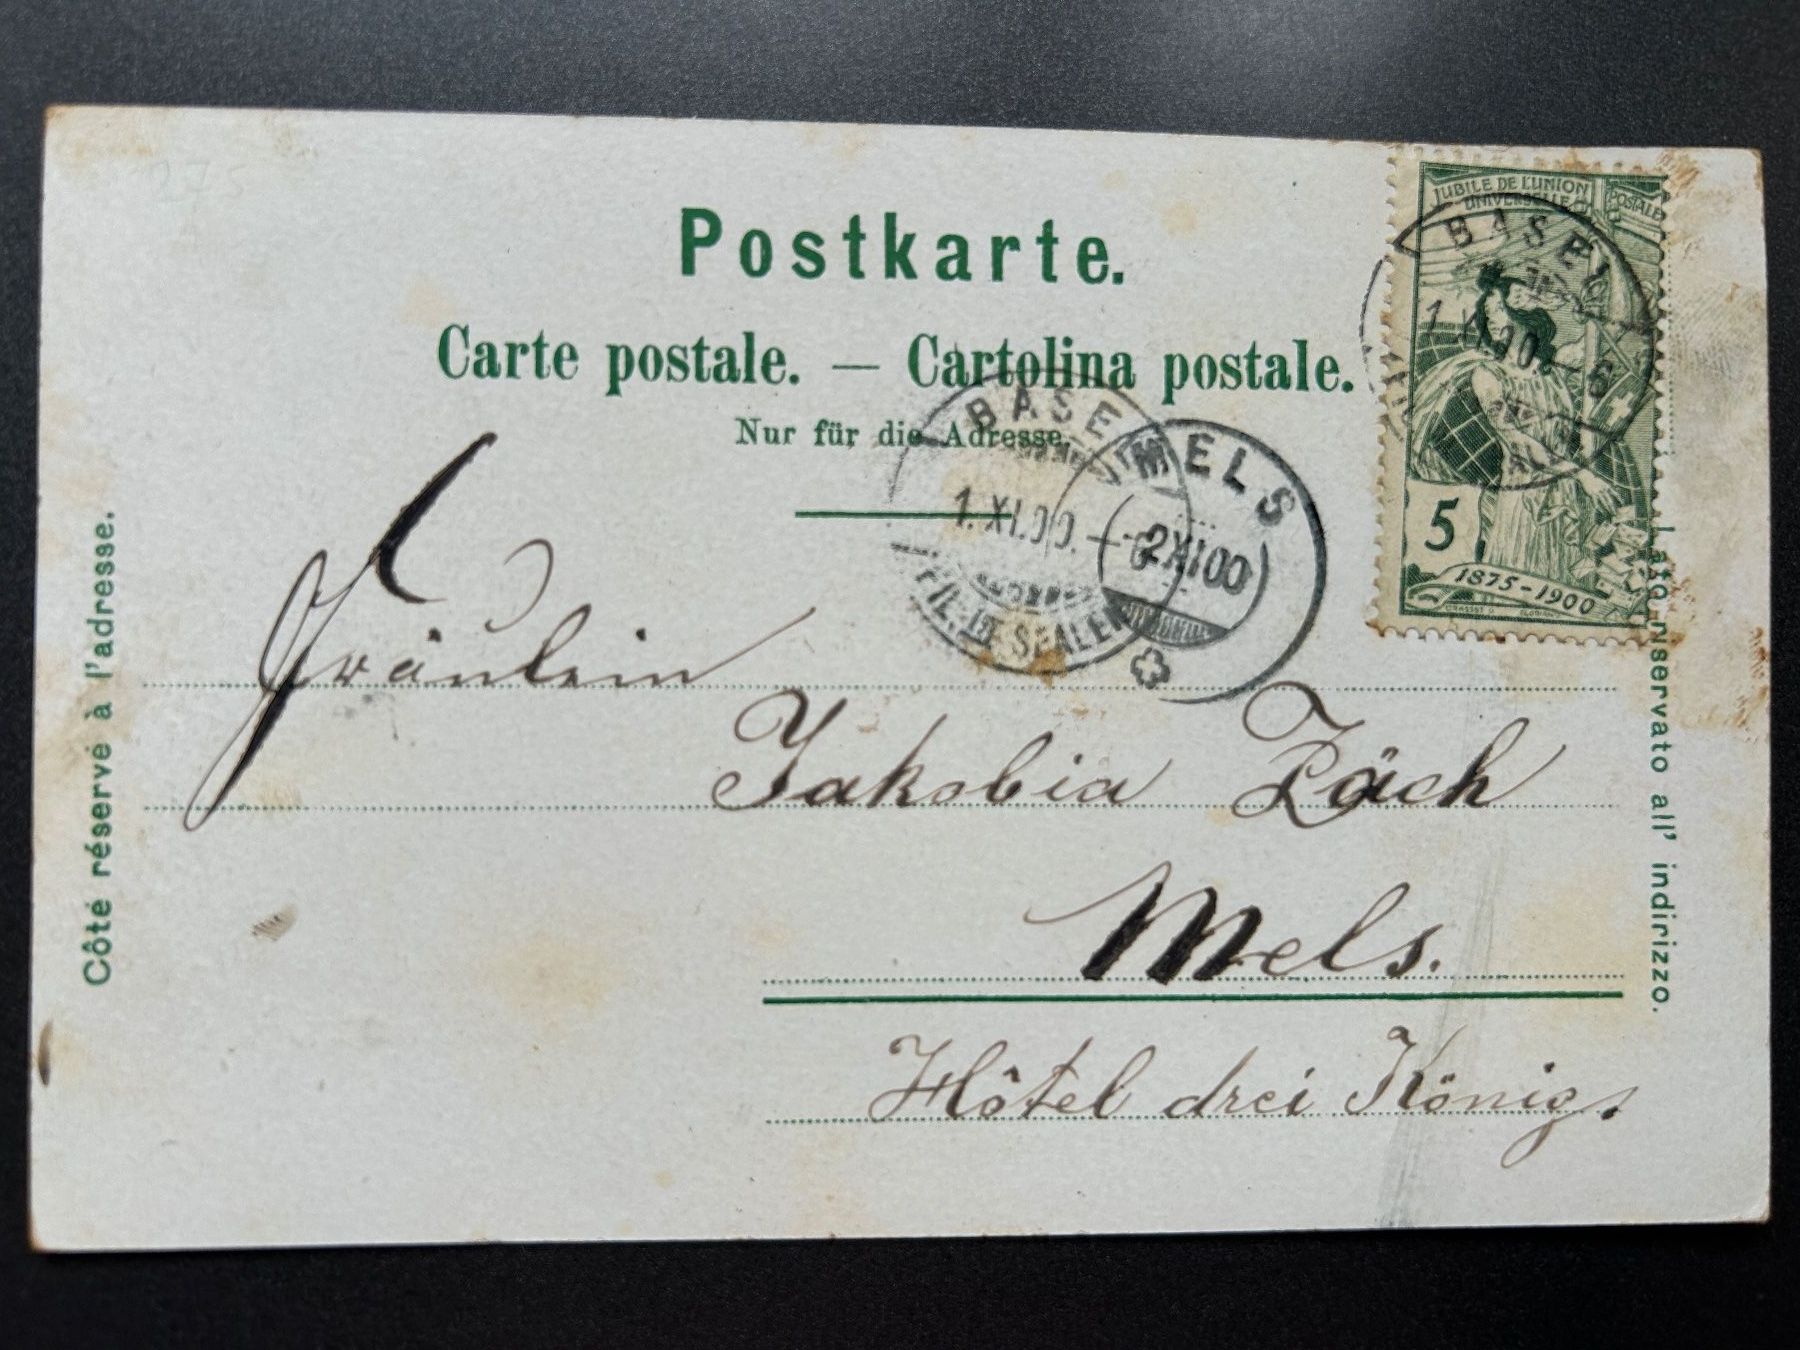 Postkarte.
Carte postale. — Cartolina postale.
Nur für die Adresse.
Côté réservé à l'adresse.
Lato riservato all' indirizzo.
JUBILÉ DE L'UNION
UNIVERSELLE POSTALE
5
1875-1900
BASEL
1.XI.00.-6
BASEL
1.XI.00.-6
FIL. SPALEN
MELS
2XI00
Fräulein
Jakobia Zäch
Mels.
Hôtel drei König.